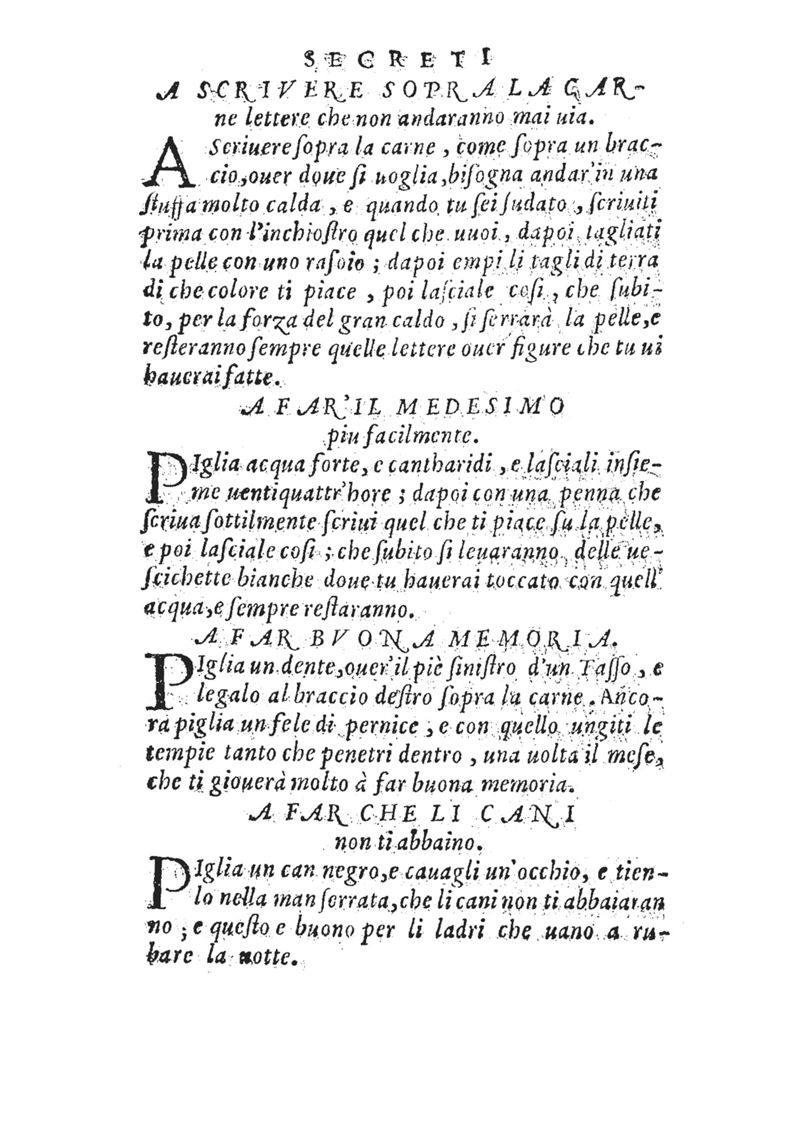 SECRETI
A SCRIVERE SOPRA LA CAR-
ne lettere che non andaranno mai uia.
A Scriuere ſopra la carne, come ſopra un brac-
cio, ouer doue ſi uoglia, biſogna andar'in una
ſtuffa molto calda, e quando tu ſei ſudato, ſcriuiti
prima con l'inchioſtro quel che uuoi, dapoi tagliati
la pelle con uno raſoio; dapoi empi li tagli di terra
di che colore ti piace, poi laſciale coſi, che ſubi-
to, per la forza del gran caldo, ſi ſerrarà la pelle, e
reſteranno ſempre quelle lettere ouer figure che tu ui
hauerai fatte.
A FAR'IL MEDESIMO
piu facilmente.
PIglia acqua forte, e cantharidi, e laſciali inſie-
me uentiquattr'hore; dapoi con una penna che
ſcriua ſottilmente ſcriui quel che ti piace ſu la pelle,
e poi laſciale coſi; che ſubito ſi leuaranno delle ue-
ſcichette bianche doue tu hauerai toccato con quell'
acqua, e ſempre reſtaranno.
A FAR BVONA MEMORIA.
PIglia un dente, ouer'il piè ſiniſtro d'un Taſſo, e
legalo al braccio deſtro ſopra la carne. Anco-
ra piglia un fele di pernice, e con quello ungiti le
tempie tanto che penetri dentro, una uolta il meſe,
che ti giouerà molto à far buona memoria.
A FAR CHE LI CANI
non ti abbaino.
PIglia un can negro, e cauagli un'occhio, e tien-
lo nella man ſerrata, che li cani non ti abbaiaran
no; e queſto e buono per li ladri che uano a ru-
bare la notte.